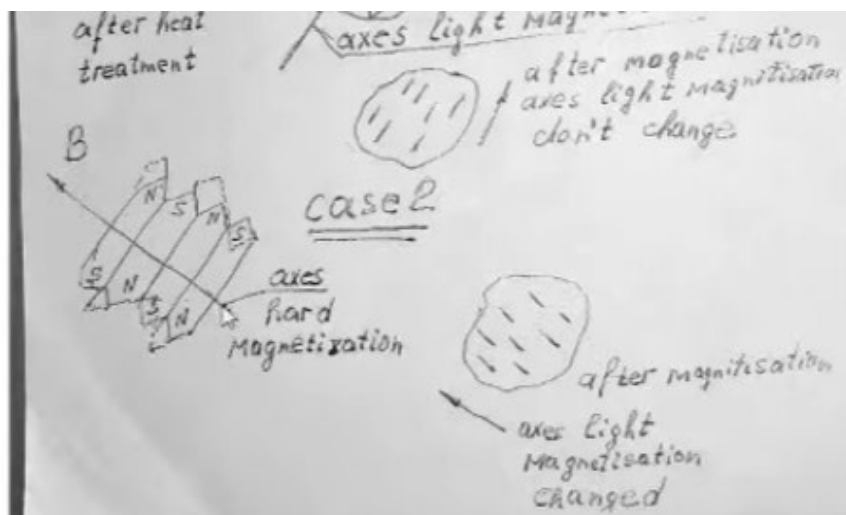 after heat
treatment
axes light magne
after magnetisation
axes light magnitisation
don't change
B
N
S
N
S
case 2
S
N
S
N
axes
hard
magnetization
after magnitisation
axes light
magnetisation
changed